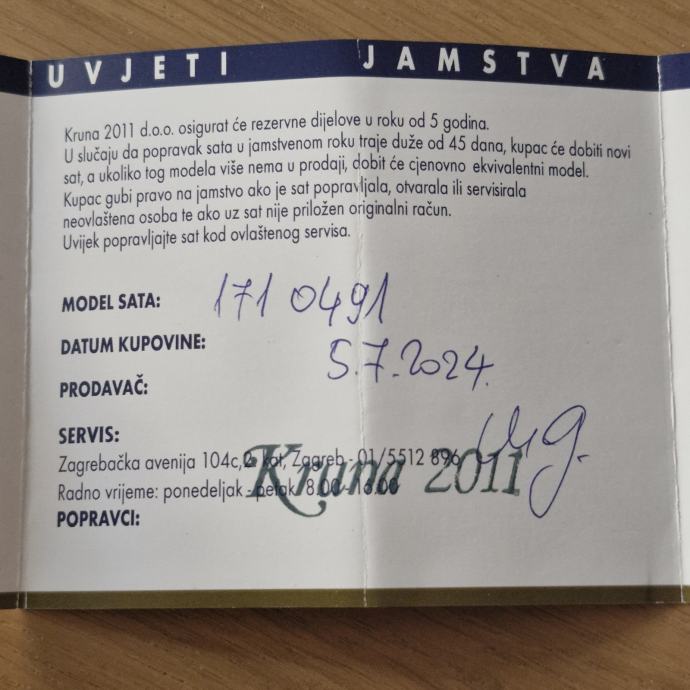 UVJETI JAMSTVA
Kruna 2011 d.o.o. osigurat će rezervne dijelove u roku od 5 godina.
U slučaju da popravak sata u jamstvenom roku traje duže od 45 dana, kupac će dobiti novi
sat, a ukoliko tog modela više nema u prodaji, dobit će cjenovno ekvivalentni model.
Kupac gubi pravo na jamstvo ako je sat popravljala, otvarala ili servisirala
neovlaštena osoba te ako uz sat nije priložen originalni račun.
Uvijek popravljajte sat kod ovlaštenog servisa.
MODEL SATA: 171 0491
DATUM KUPOVINE: 5.7.2024.
PRODAVAČ:
SERVIS:
Zagrebačka avenija 104c, 2. kat, Zagreb - 01/5512 896
Kruna 2011
Radno vrijeme: ponedeljak - petak 8.00 - 16.00
POPRAVCI: